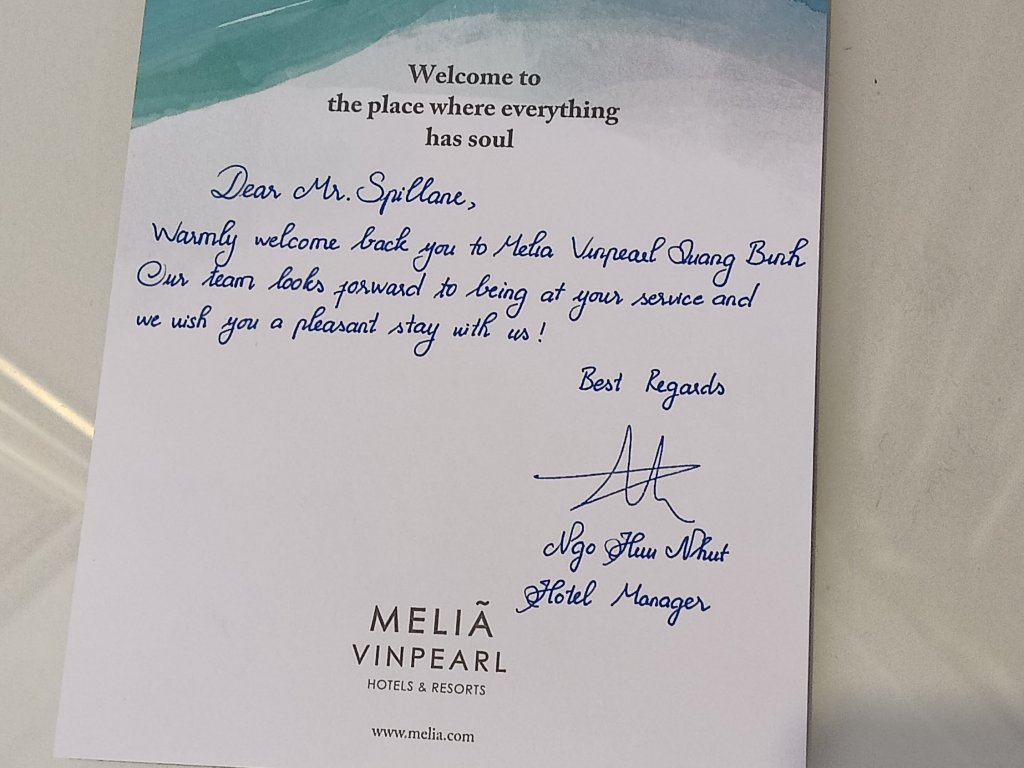 Welcome to
the place where everything
has soul
Dear Mr. Spillane,
Warmly welcome back you to Melia Vinpearl Quang Binh
Our team looks forward to being at your service and
we wish you a pleasant stay with us!
Best Regards
Ngo Huu Nhut
Hotel Manager
MELIÃ
VINPEARL
HOTELS & RESORTS
www.melia.com